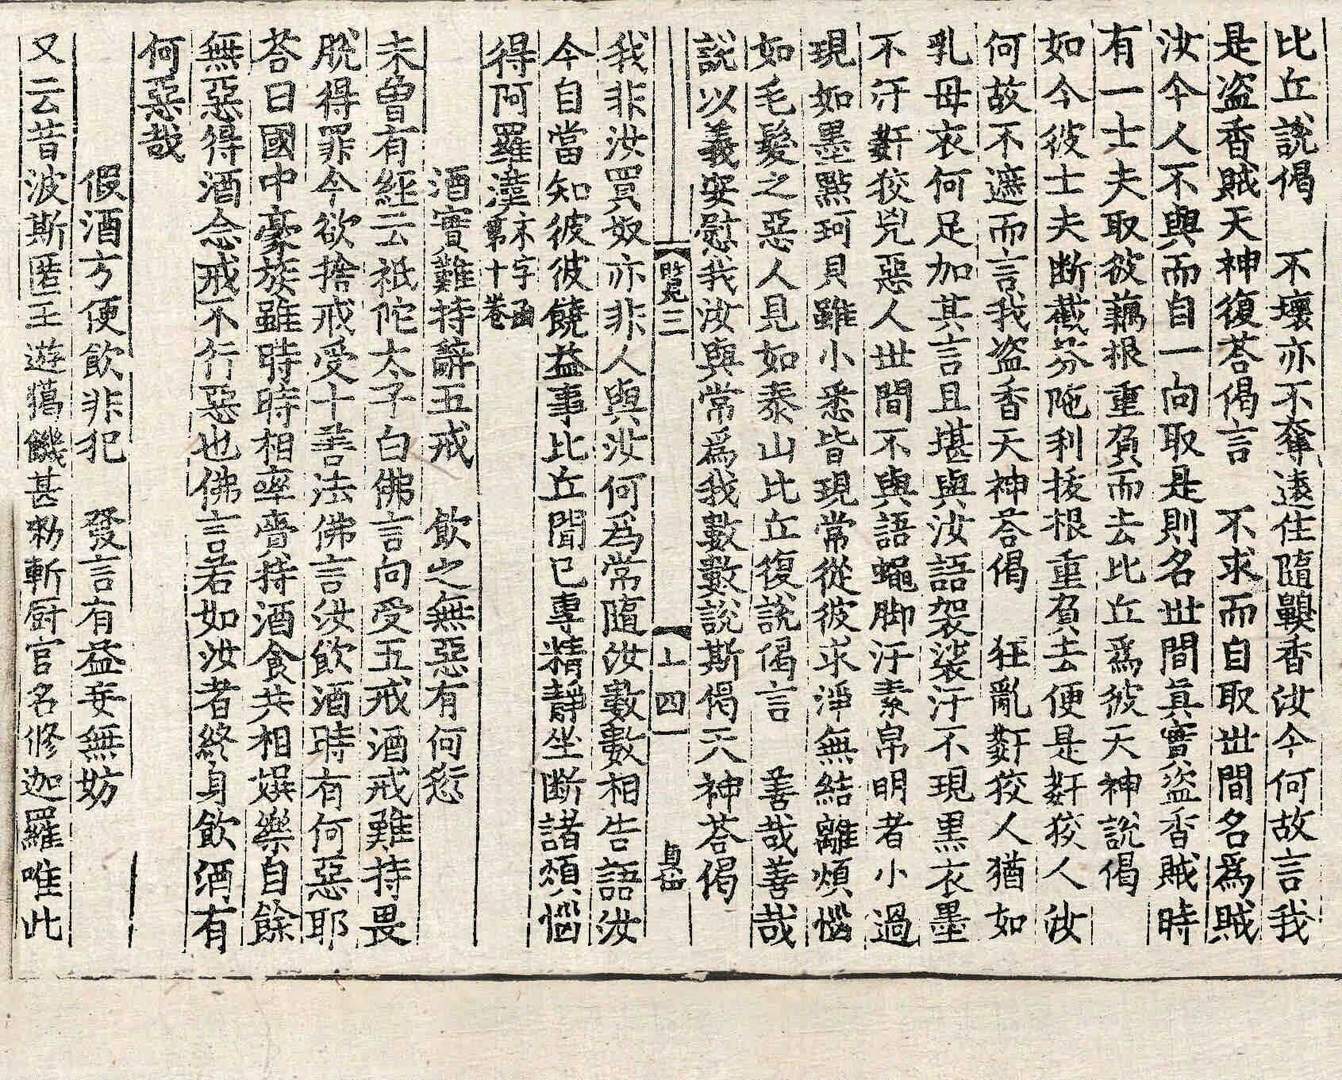 比丘說偈　不壞亦不奪遠住隨齅香汝今何故言我
是盜香賊天神復荅偈言　不求而自取世間名爲賊
汝今人不與而自一向取是則名世間真實盜香賊時
有一士夫取彼藕根重負而去比丘爲彼天神說偈
如今彼士夫断截芬陁利拔根重負去便是姧狡人汝
何故不遮而言我盜香天神荅偈　狂亂姧狡人猶如
乳母衣何足加其言且堪與汝語袈裟汙不現黒衣墨
不汙姧狡兇惡人世間不與語蠅脚汙素帛明者小過
現如墨點珂貝雖小悉皆現常從彼求淨無結離煩惱
如毛髮之惡人見如泰山比丘復說偈言　善哉善哉
說以義安慰我汝與常爲我數數說斯偈天神荅偈
上四
我非汝買奴亦非人與汝何為常隨汝數數相告語汝
今自當知彼彼饒益事比丘聞已專精靜坐断諸煩惱
得阿羅漢末字函第十卷
酒實難持辭五戒　飲之無惡有何愆
未曾有經云祇陀太子白佛言向受五戒酒戒難持畏
脫得罪今欲捨戒受十善法佛言汝飲酒時有何惡耶
荅曰國中豪族雖時時相率賷持酒食共相娯樂自餘
無惡得酒念戒不行惡也佛言若如汝者終身飲酒有
何惡哉
假酒方便飲非犯　發言有益妄無妨
又云昔波斯匿王遊獦饑甚勑斬厨官名修迦羅唯此